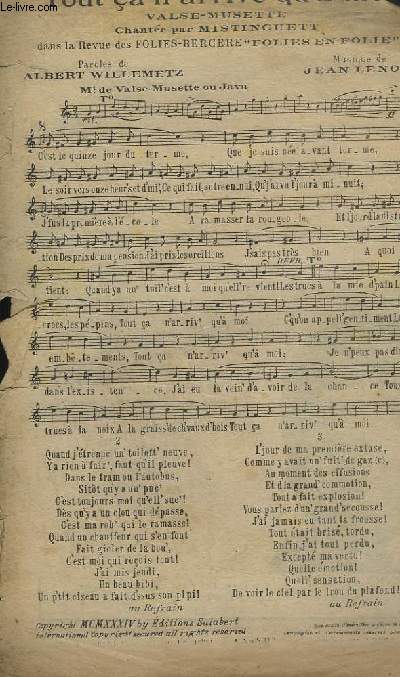 Tout ça n'arrive qu'à
VALSE-MUSETTE
Chantée par MISTINGUETT
dans la Revue des FOLIES-BERGERE "FOLIES EN FOLIE"
Paroles de
ALBERT WILLEMETZ
Musique de
JEAN LENO
Mt de Valse-Musette ou Java
C'est le quinze jour du ter _ me, Que je suis née a_vant ter_me,
Le soir vers onze heur's et d'mi, Ce qui fait, entre en_nui, Qu'j'arrive l'jour à mi_nuit;
J'fus la première à l'é_co_le A ra_masser la rou_geo_le,
tion Des prix de ma pension J'ai pris les oreill'ons J'sais pas très bien A quoi
tient: Quand ya un' tuil' c'est à moi qu'ell' re_vient Les trucs à la mie d'pain
croes, les pé_pins, Tout ça n'ar_riv' qu'à moi C'qu'on ap_pell' gen_ti_ment
em_bê_te_ments, Tout ça n'ar_riv' qu'à moi; Je n'peux pas
dans l'ex_is_ten_ce, J'ai eu la vein' d'a_voir de la chan_ce
trucs à la noix, A la graiss' de ch'vaux d'bois Tout ça n'ar_riv' qu'à moi
2
Quand j'étrenne un' toilett' neuve,
Ya rien à fair', faut qu'il pleuve!
Dans le tram ou l'autobus,
Sitôt qu'y a un' pue'
C'est toujours moi qu'ell' suc'!
Dès qu'y a un clou qui dépasse,
C'est ma rob' qui le ramasse!
Quand un chauffeur qui s'en fout
Fait gicler de la bou',
C'est moi qui reçois tout!
J'ai mis jeudi,
Un beau bibi,
Un p'tit oiseau a fait d'ssus son pipi!
au Refrain
3
L'jour de ma première extase,
Comme y avait un' fuit' de gaz (e),
Au moment des effusions
Et d'la grand' commotion,
Tout a fait explosion!
Vous parlez d'un' grand' secousse!
J'ai jamais eu tant la frousse!
Tout était brisé, tordu,
Enfin, j'ai tout perdu,
Excepté ma vertu!
Quelle émotion!
Quell' sensation,
De voir le ciel par le trou du plafond!
au Refrain
Copyright MCMXXXIV by Editions Salabert
International Copyright secured all rights reserved